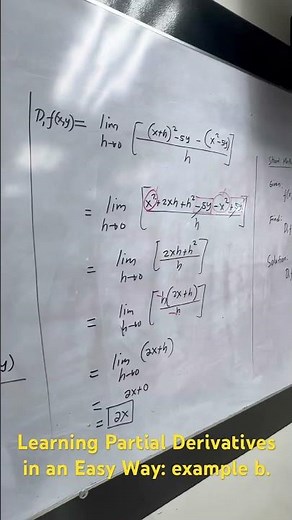 D₁f(x,y) = lim h→0 [(x+h)² -5y - (x²-5y) / h]
= lim h→0 [x² + 2xh + h² - 5y - x² + 5y / h]
= lim h→0 [2xh + h² / h]
= lim h→0 [h(2x+h) / h]
= lim h→0 (2x+h)
= 2x+0
= 2x
y)
Given:
f(x
Find:
D₁
Solution:
D₁
Learning Partial Derivatives
in an Easy Way: example b.